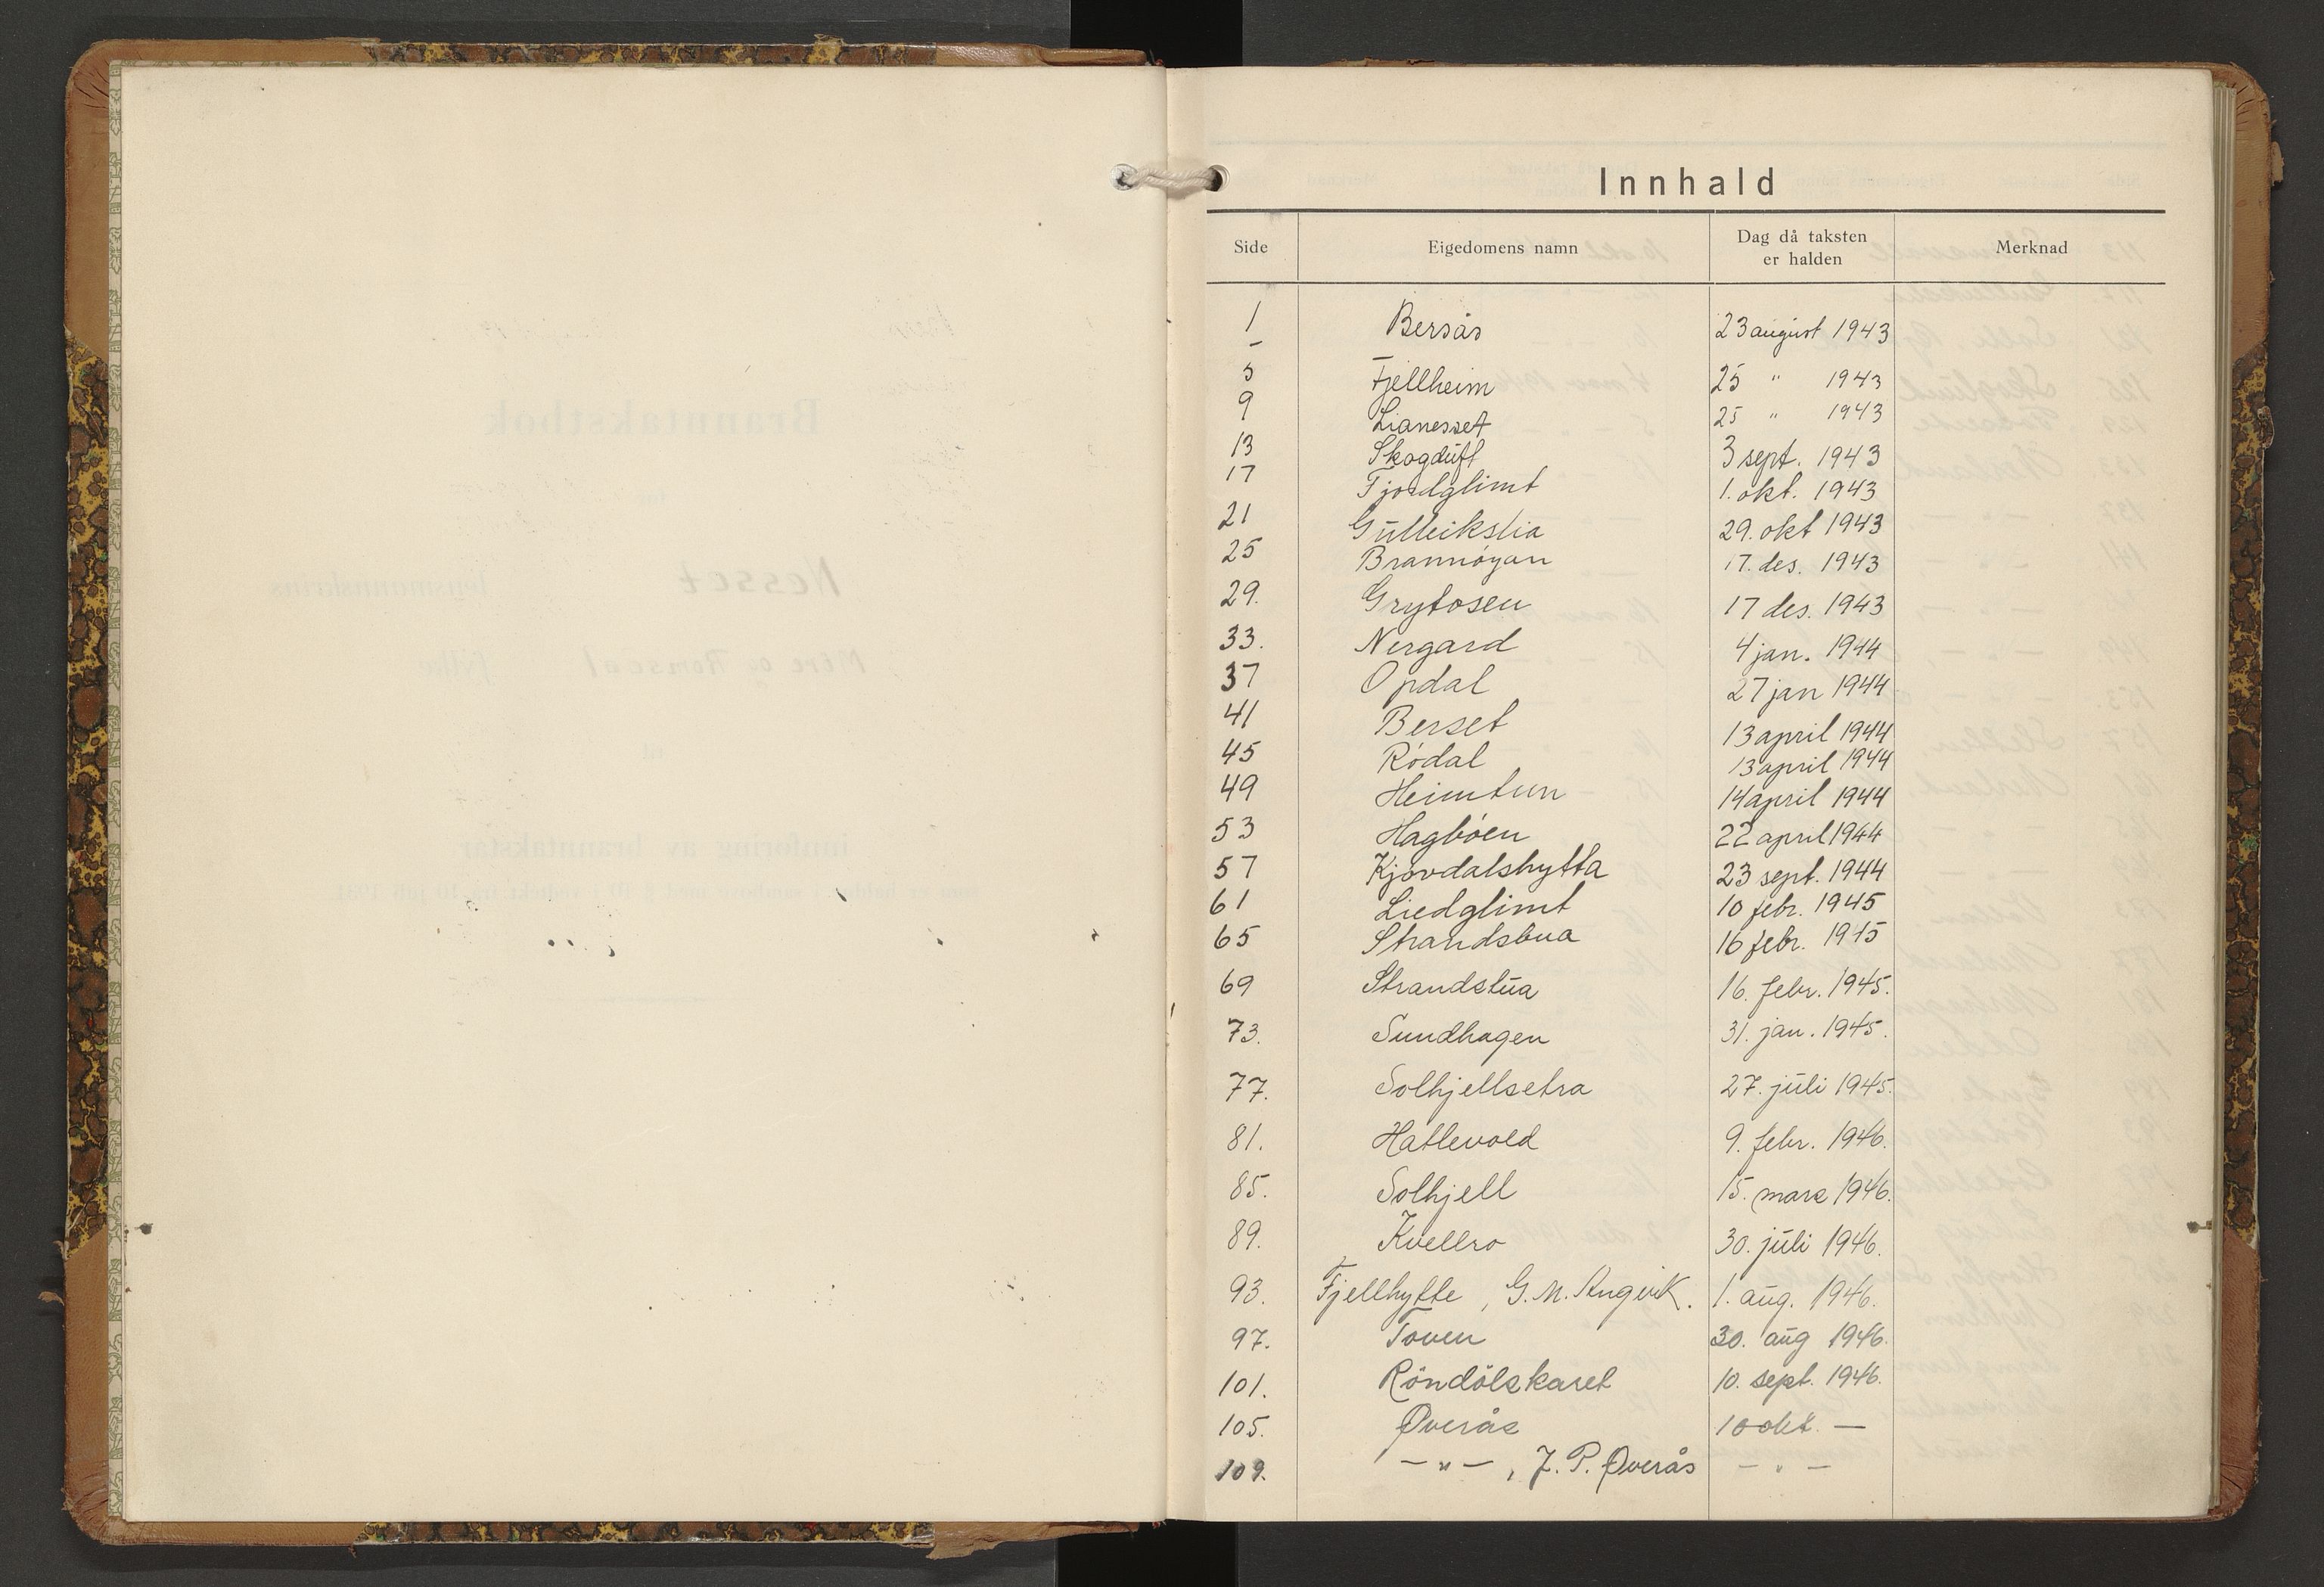 Innhald
Side Eigedomens namn Dag då taksten er halden Merknad
1 Bersås 23 august 1943
5 Fjellheim 25 " 1943
9 Lianesset 25 " 1943
13 Skogduft 3 sept. 1943
17 Fjordglimt 1. okt. 1943
21 Gulleikslia 29. okt 1943
25 Brannøyan 17. des. 1943
29. Grytosen 17 des. 1943
33. Nergard 4 jan. 1944
37 Opdal 27 jan 1944
41 Berset 13 april 1944
45 Rødal 13 april 1944
49 Heimtun 14 april 1944
53 Hagbøen 22 april 1944
57 Kjøvdalshytta 23 sept. 1944
61 Liedglimt 10 febr. 1945
65 Strandsbua 16 febr. 1945
69 Strandstua 16. febr. 1945.
73. Sundhagen 31. jan. 1945.
77. Solhjellsetra 27. juli 1945.
81. Hatlevold 9. febr. 1946.
85. Solhjell 15. mars 1946.
89. Kvellro 30. juli 1946.
93. Fjellhytte, G. M. Angvik. 1. aug. 1946.
97. Toven 30. aug 1946.
101. Röndölskaret 10. sept. 1946.
105. Øverås 10 okt. —
109. — " —, J. P. Øverås — " —